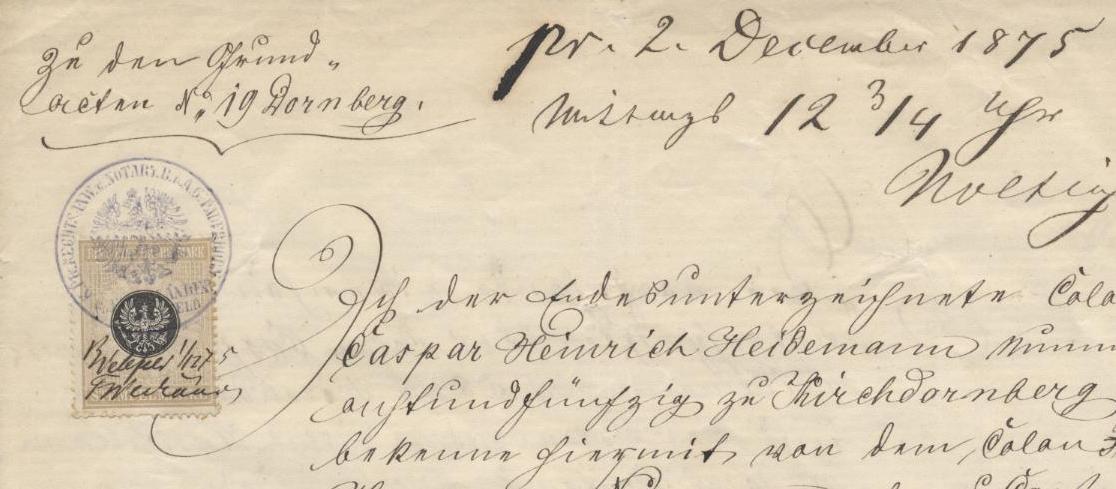 Zu den Grund-
acten No. 19 Dornberg.
pr. 2. December 1875
Mittags 12 3/4 Uhr
Ich der Endesunterzeichnete Colo
Caspar Heinrich Heidemann Numm
achtundfünfzig zu Kirchdornberg
bekenne hiermit von dem Colon